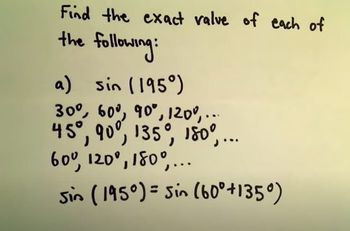 Find the exact value of each of
the following:
a) sin (195°)
30°, 60°, 90°, 120°, ...
45°, 90°, 135°, 180°, ...
60°, 120°, 180°, ...
sin (195°) = sin (60°+135°)